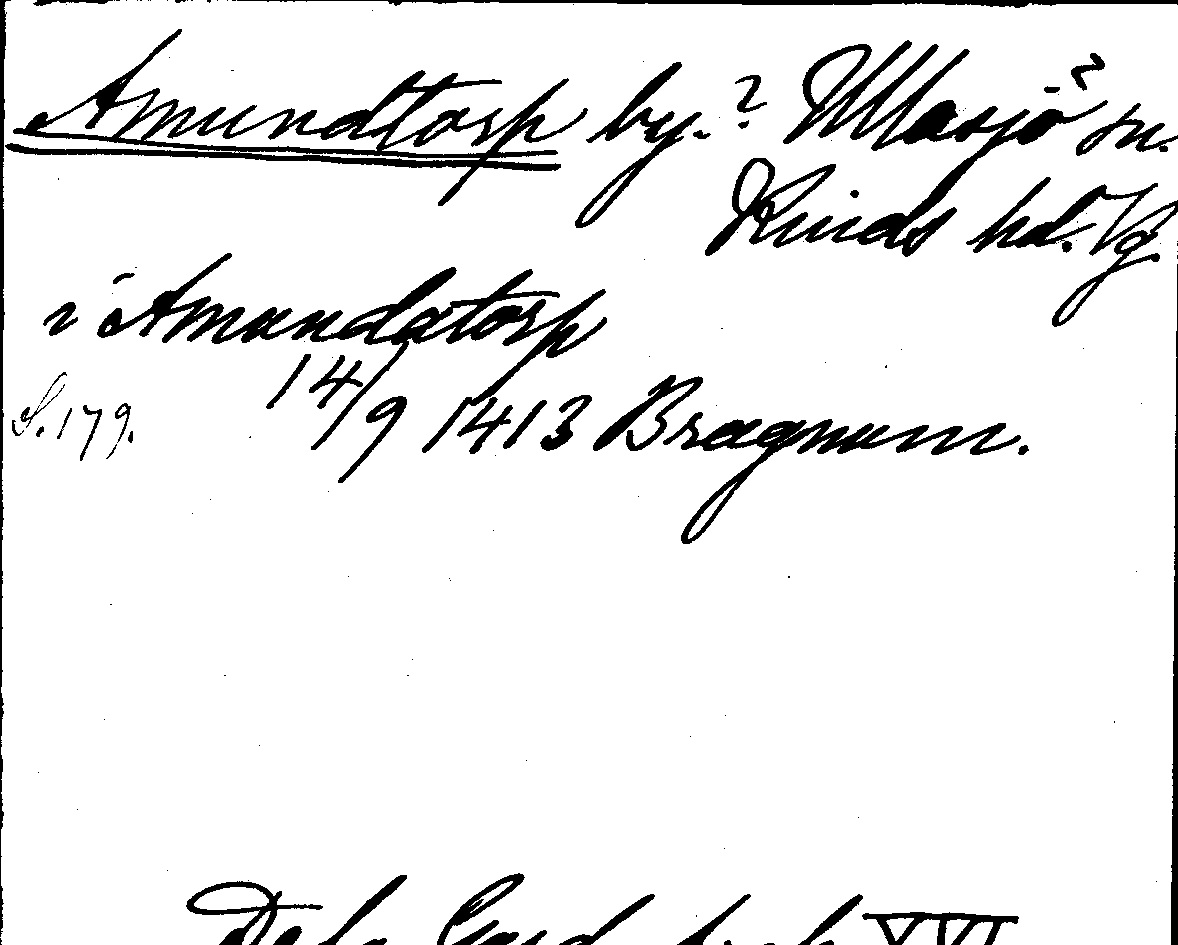 Amundtorp by.? Ullasjö? sn.
Kinds hd. Vg.
i Amundatorp
S. 179. 14/9 1413 Bragnum.
De la Gard. ark. XVI